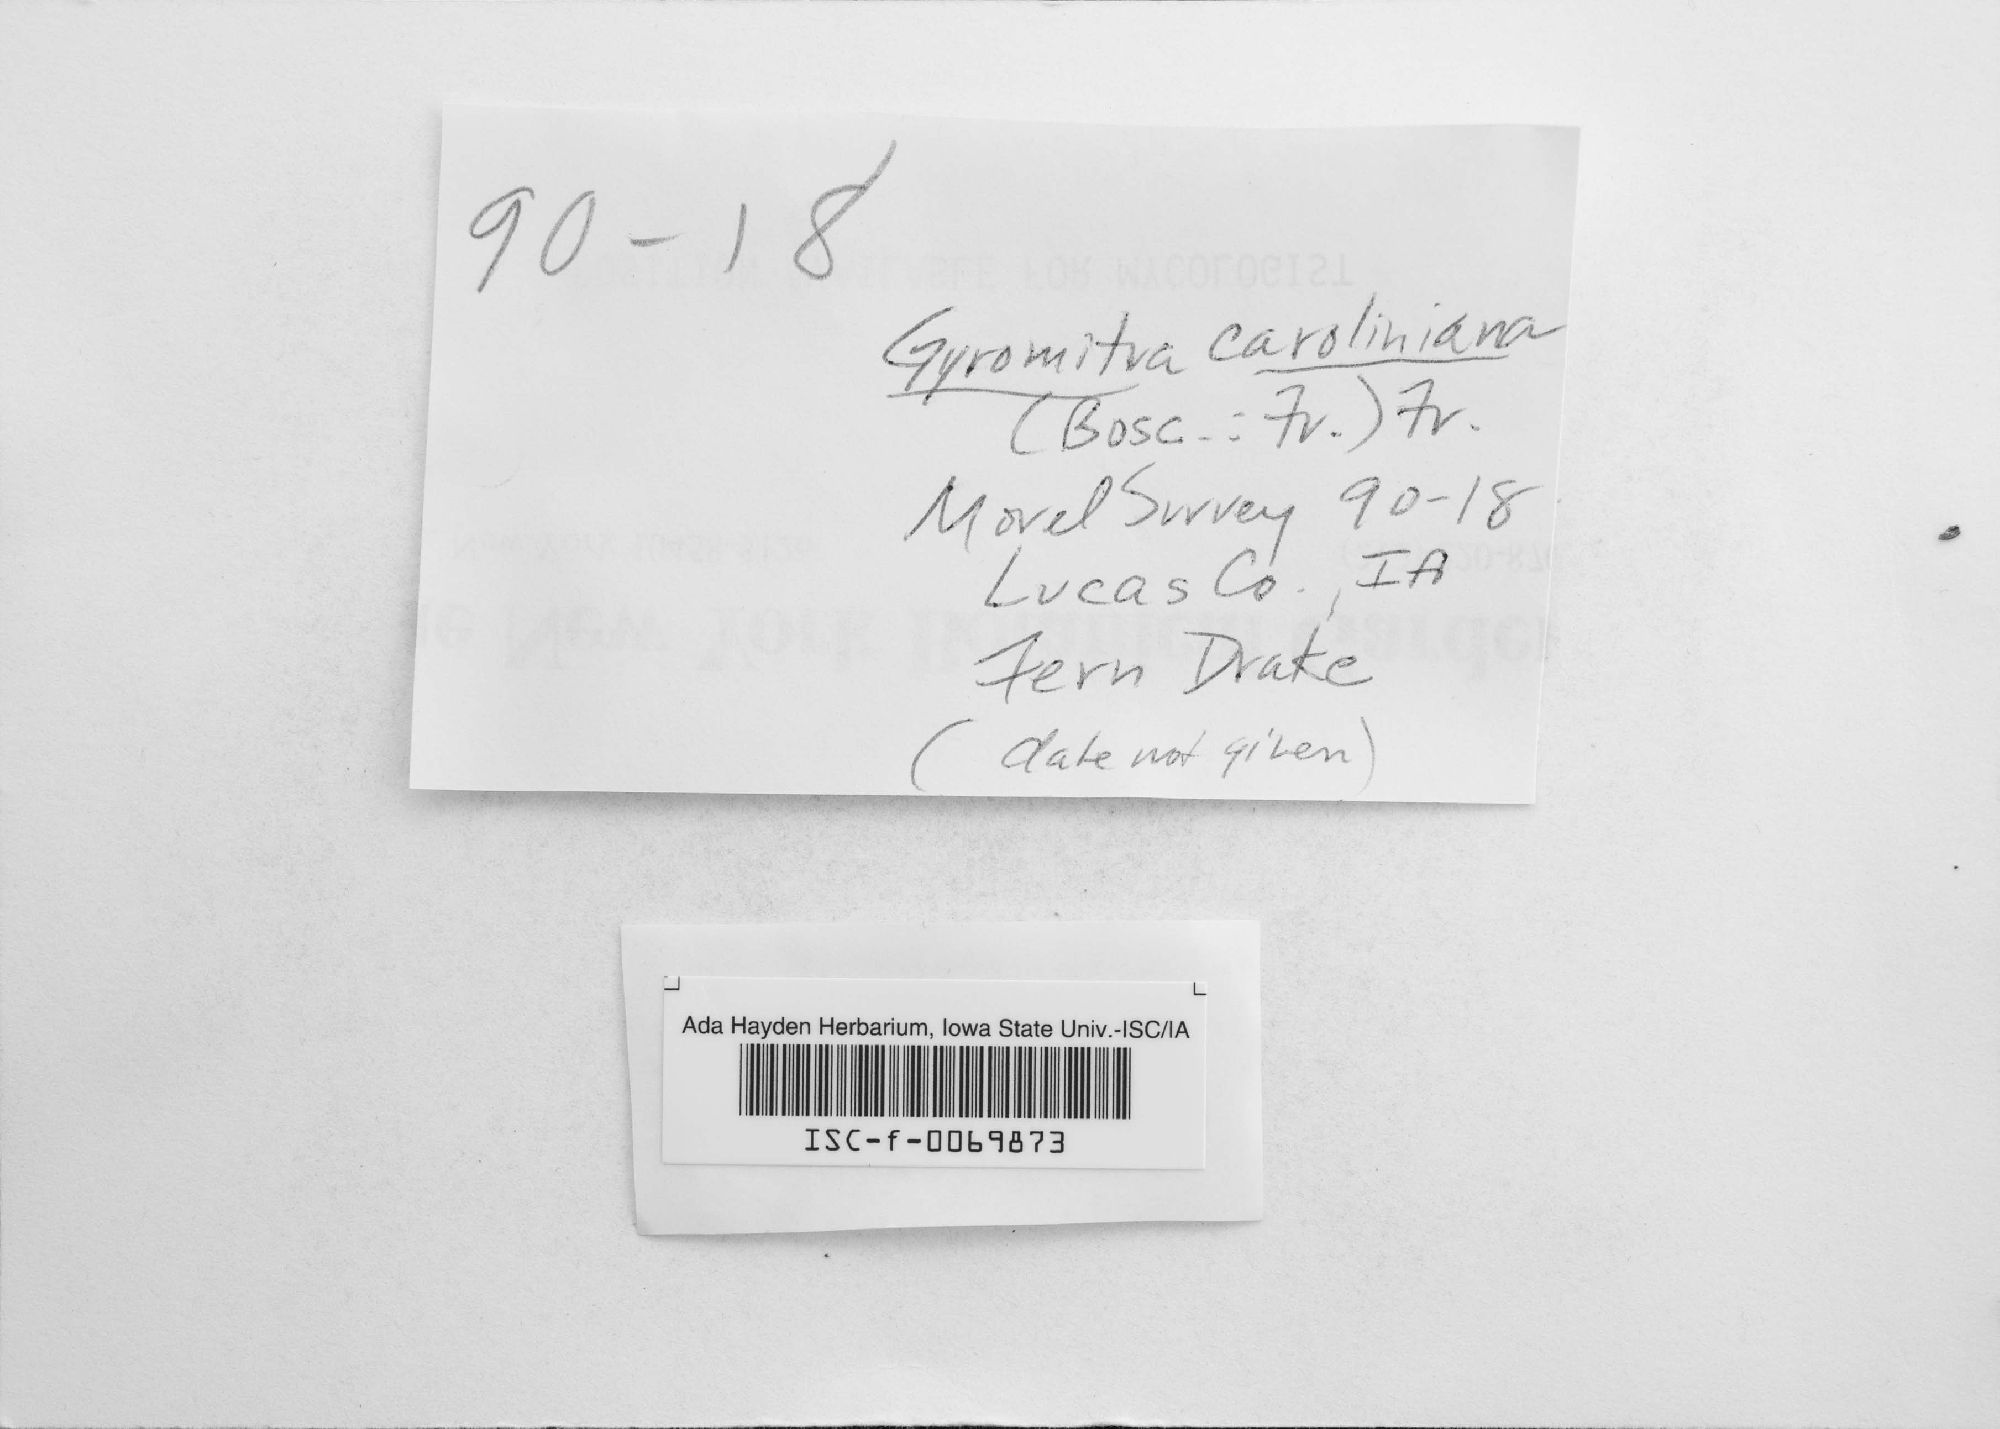 90-18
Gyromitra caroliniana
(Bosc.: Fr.) Fr.
Morel Survey 90-18
Lucas Co., IA
Fern Drake
(date not given)
Ada Hayden Herbarium, Iowa State Univ.-ISC/IA
ISC-f-0069873